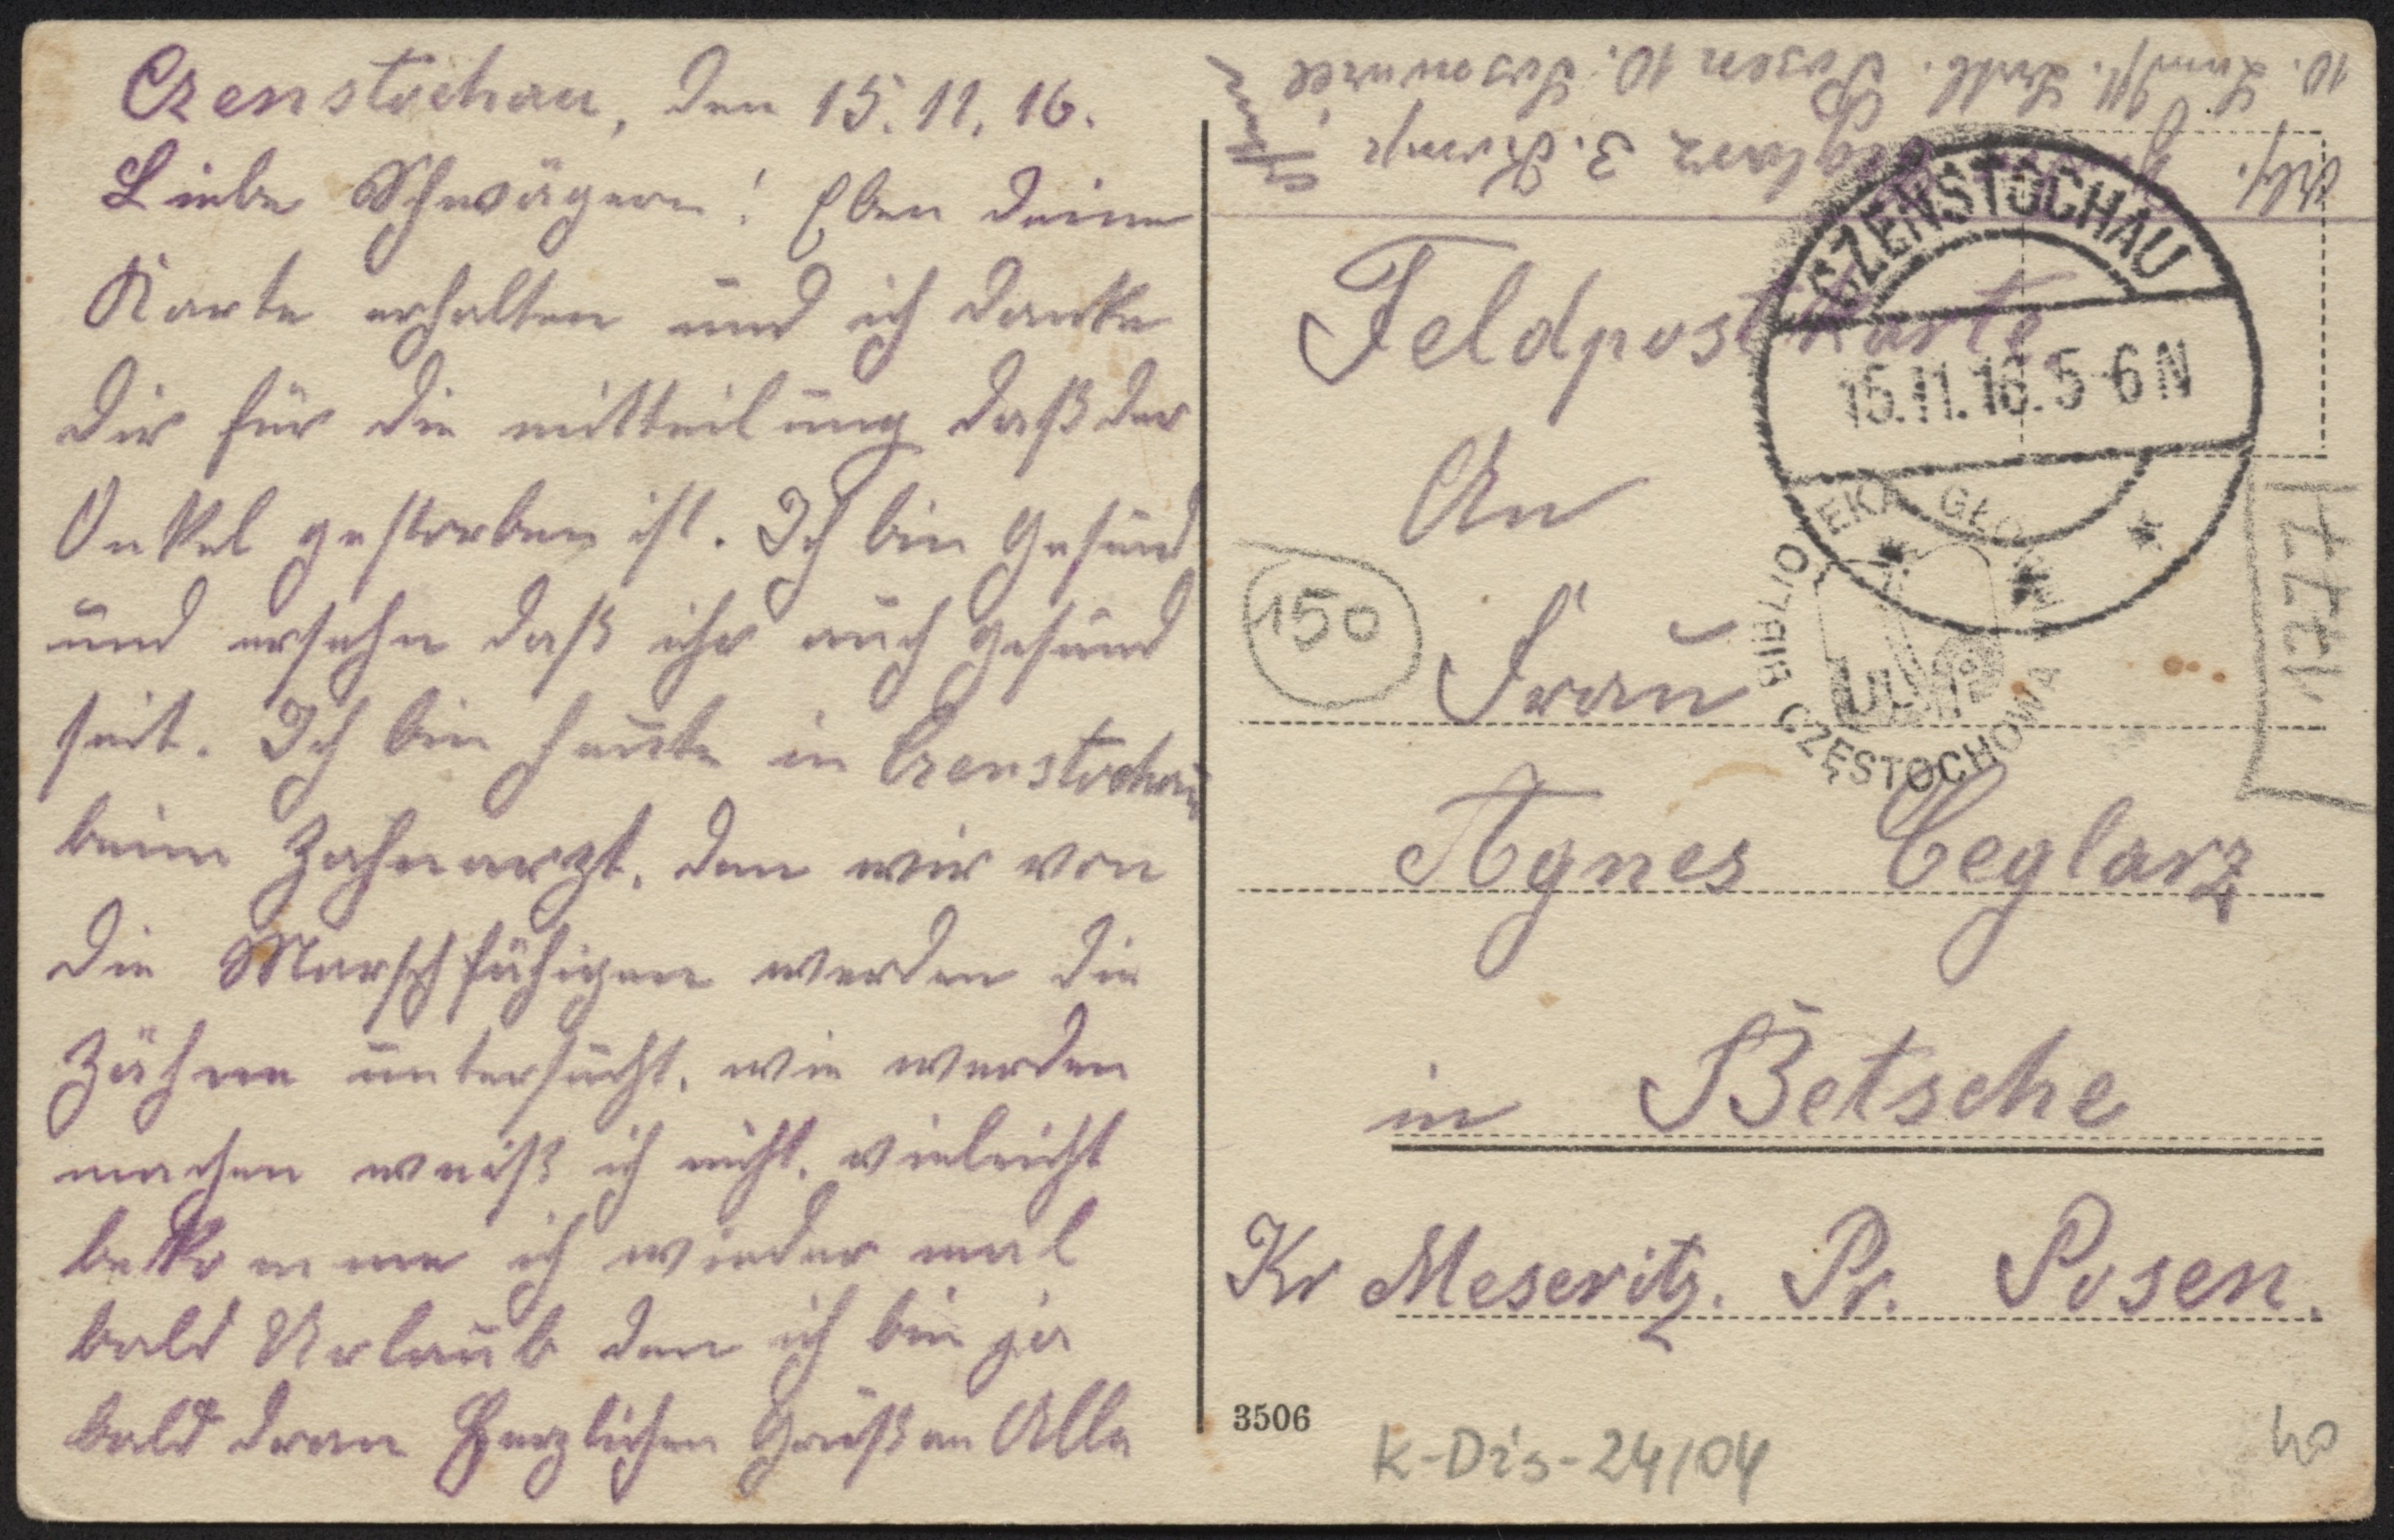 Czenstochau, den 15.11.16.
Liebe Schwägern! Eben deine
Karte erhalten und ich danke
dir für die mitteilung daß der
Onkel gestorben ist. Ich bin Gesund
und ersehe daß ihr auch gesund
seit. Ich bin heute in Czenstochau
beim Zahnarzt, den wir von
die Marschfähigen werden die
Zähne untersucht, wie werden
machen weiß ich nicht, vieleicht
bekomme ich wieder mal
bald Urlaub den ich bin ja
bald dran Herzlichen Gruß an Alle
Abs. Ceglarz 3. Komp.
10. Landst. Batl. Posen 10.
CZENSTOCHAU
15.11.16. 5-6N
Feldpostkarte
An
150
Frau
BIBLIOTEKA GŁÓWNA
CZĘSTOCHOWA
Agnes Ceglarz
in Betsche
Kr Meseritz. Pr. Posen.
3506
K-Dis-24/04
40